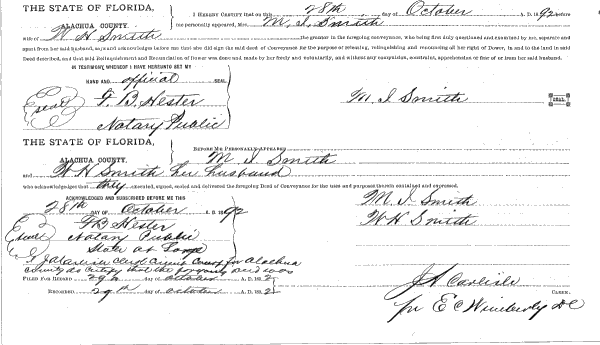 THE STATE OF FLORIDA,
ALACHUA COUNTY.
I HEREBY CERTIFY that on this 28th day of October A. D. 1892 before
me personally appeared, Mrs. M. I. Smith
wife of W H Smith the grantor in the foregoing conveyance, who being first duly questioned and examined by me, separate and
apart from her said husband, as did acknowledge before me that she did sign the said deed of Conveyance for the purpose of releasing, relinquishing and renouncing all her right of Dower, in and to the land in said
Deed described, and that said Relinquishment and Renunciation of Dower was done and made by her freely and voluntarily, and without any compulsion, constraint, apprehension or fear of or from her said husband.
IN TESTIMONY WHEREOF I HAVE HEREUNTO SET MY
HAND AND official SEAL
F. B. Hester
Notary Public
M. I Smith
SEAL.
THE STATE OF FLORIDA,
ALACHUA COUNTY.
BEFORE ME PERSONALLY APPEARED
M. I. Smith
and W H Smith her husband
who acknowledged that they executed, signed, sealed and delivered the foregoing Deed of Conveyance for the uses and purposes therein contained and expressed.
ACKNOWLEDGED AND SUBSCRIBED BEFORE ME THIS
28th DAY OF October A. D. 1892
F B Hester
Notary Public
State at Large
M. I Smith
W H Smith
Clerk Circuit Court for Alachua
County do certify that the foregoing deed was
FILED FOR RECORD 29th day of October A. D. 1892
RECORDED 29th day of October A. D. 1892
J A Carlisle
CLERK.
per E C Wimberly DC